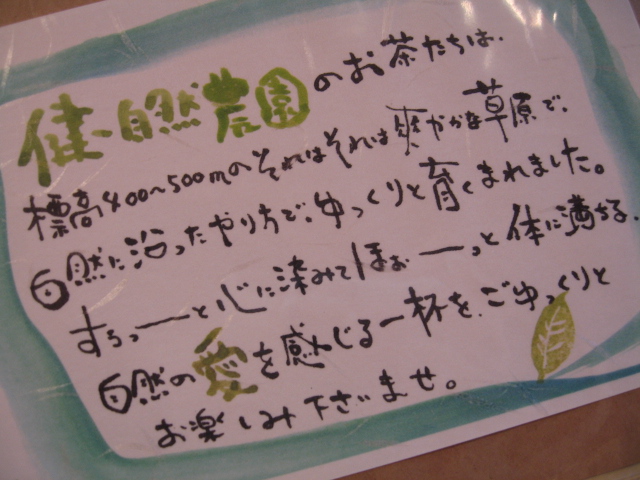 健一自然農園のお茶たちは、
標高400〜500mのそれはそれは爽やかな草原で、
自然に沿ったやり方で、ゆっくりと育くまれました。
すぅっーーと心に染みてほぉーーっと体に満ちる、
自然の愛を感じる一杯を、ごゆっくりと
お楽しみ下さいませ。